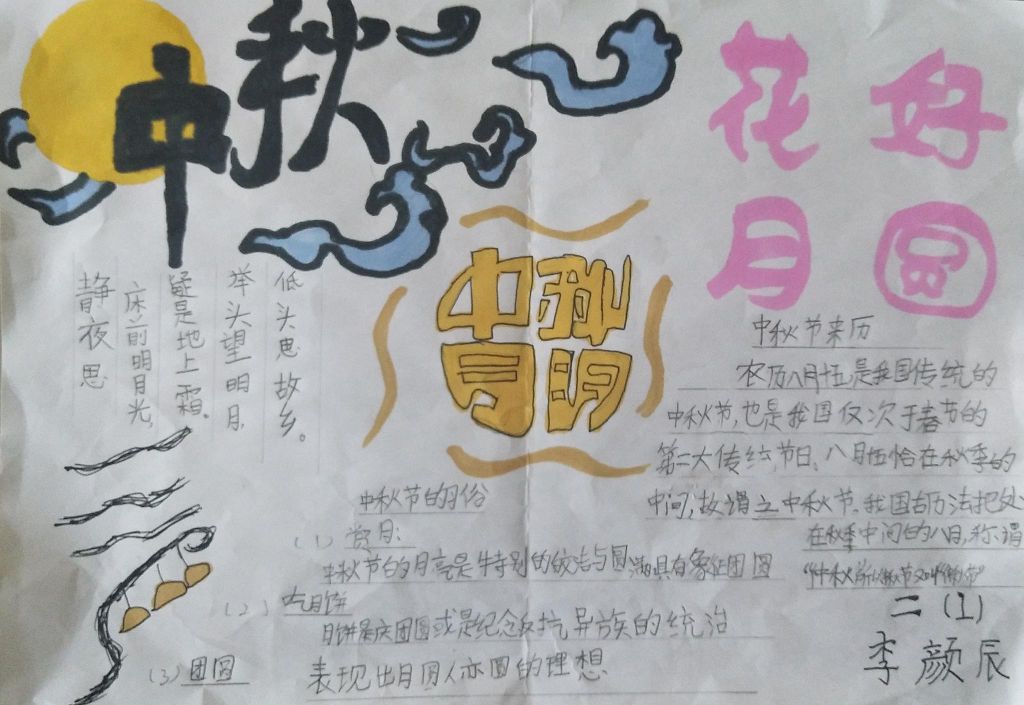 中秋
花好
月圆
中秋
月明
静夜思
床前明月光,
疑是地上霜。
举头望明月,
低头思故乡。
中秋节来历
农历八月十五是我国传统的
中秋节,也是我国仅次于春节的
第二大传统节日、八月十五恰在秋季的
中间,故谓之中秋节.我国古历法把处
在秋季中间的八月,称谓
中秋节的习俗
(1) 赏月:
中秋节的月亮是特别的皎洁与圆满具有象征团圆
(2) 吃月饼
月饼是庆团圆或是纪念反抗异族的统治
(3) 团圆
表现出月圆人亦圆的理想
二(1)
李颜辰